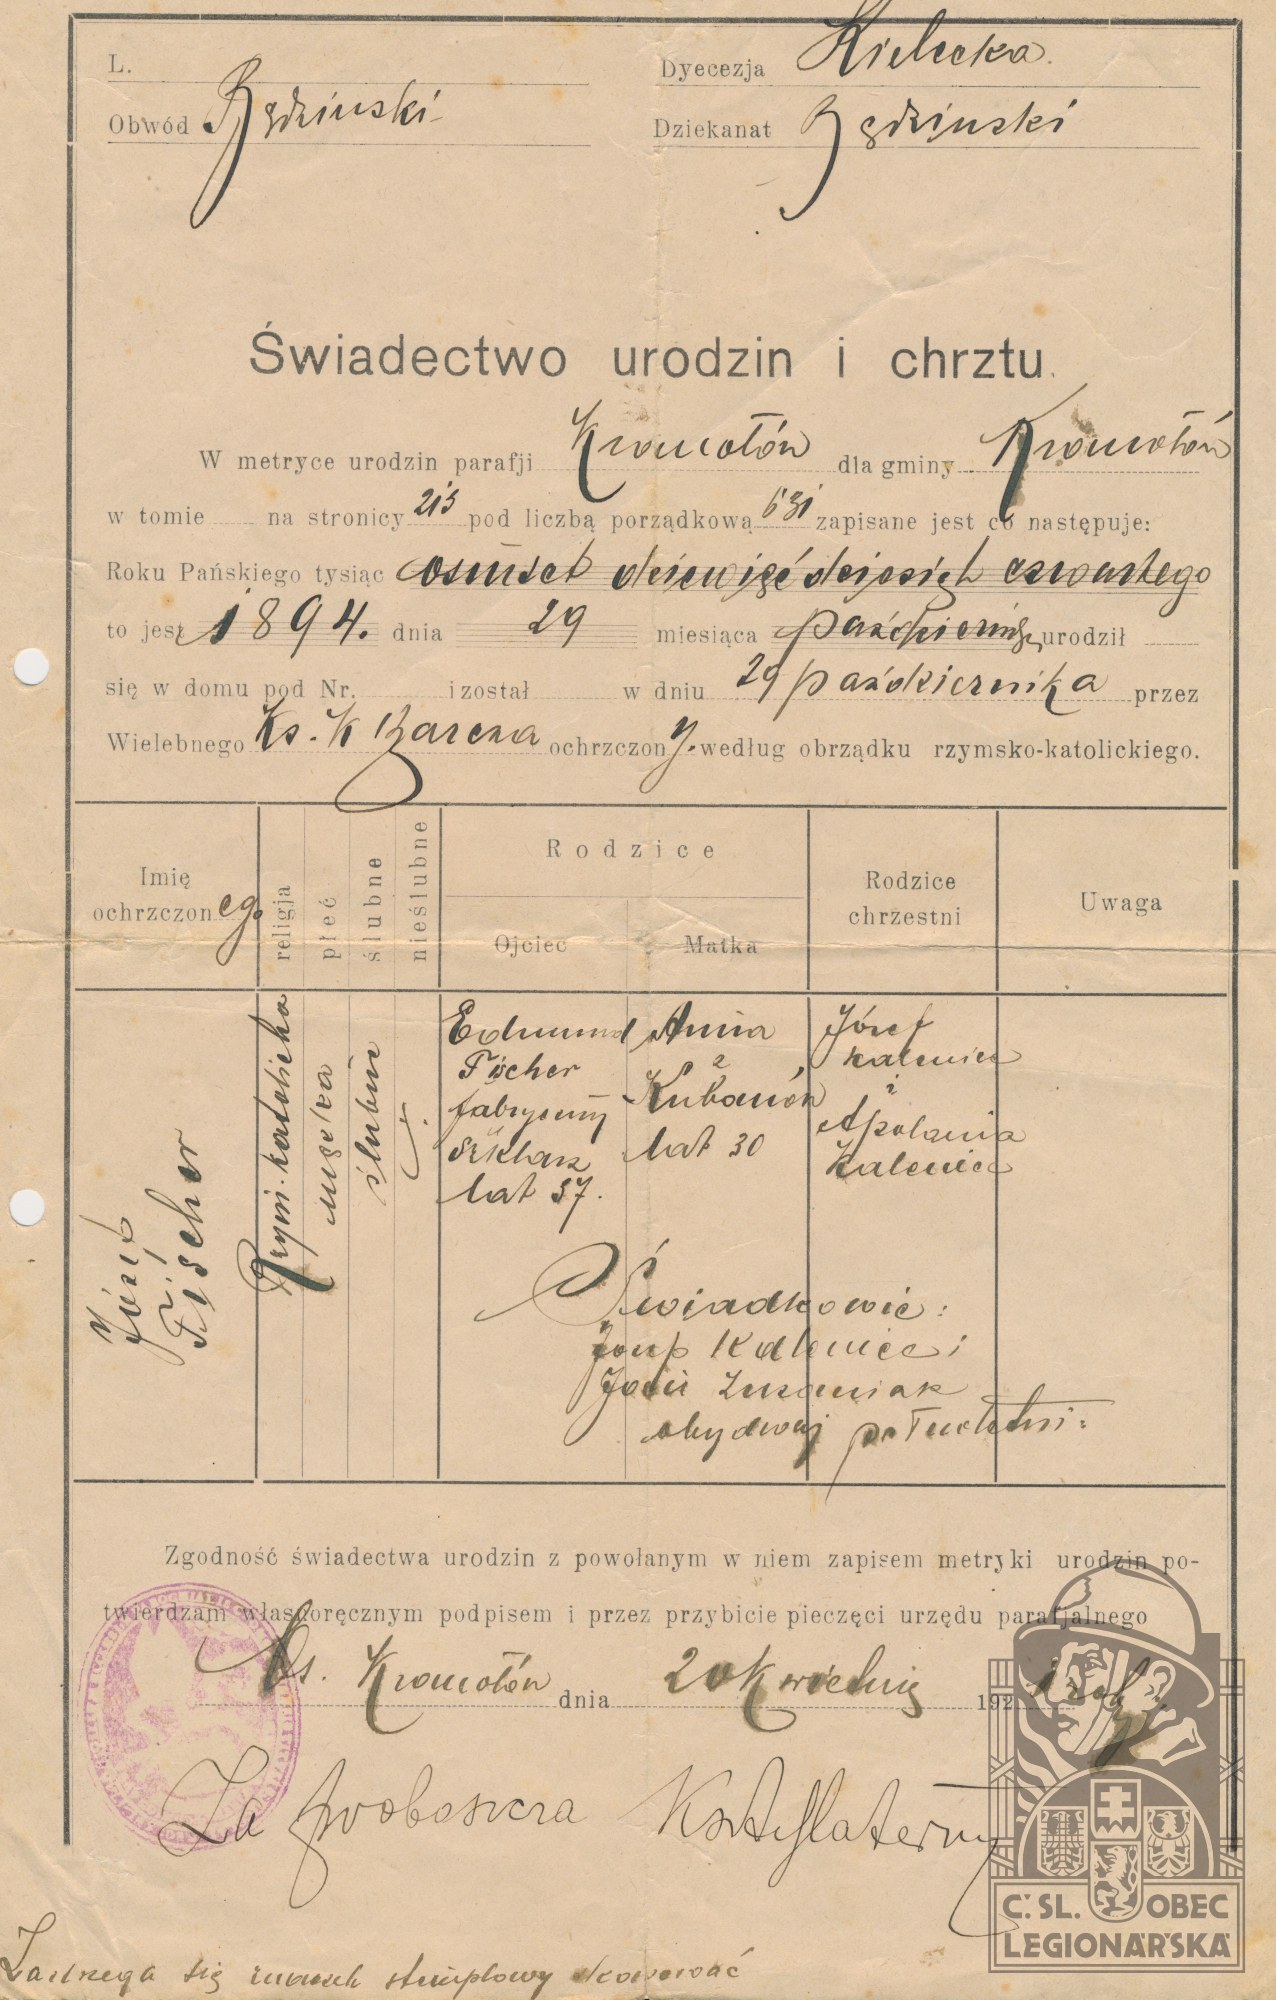 L.
Dyecezja Kielecka.
Obwód Będzinski
Dziekanat Będzinski
Świadectwo urodzin i chrztu.
W metryce urodzin parafji Kromołów dla gminy Kromołów
w tomie na stronicy 213 pod liczbą porządkową 631 zapisane jest co następuje:
Roku Pańskiego tysiąc osmset dziewięćdziesięt czwartego
to jest 1894. dnia 29 miesiąca października urodził
się w domu pod Nr. i został w dniu 29 października przez
Wielebnego Ks. K ochrzczony. według obrządku rzymsko-katolickiego.
Imię
ochrzczonego
religja
płeć
ślubne
nieślubne
Rodzice
Ojciec
Matka
Rodzice
chrzestni
Uwaga
Józef
Fischer
Rzym. katolicka
męzka
ślubne
Edmund
Fischer
fabryczny
szklarz
lat 37.
Anna
z
lat 30
Józef
i
Apolonia
Świadkowie:
i
obydwaj pełnoletni.
Zgodność świadectwa urodzin z powołanym w niem zapisem metryki urodzin po-
twierdzam własnoręcznym podpisem i przez przybicie pieczęci urzędu parafjalnego
Ks. Kromołów dnia 20 kwietnia 192
Za proboszcza
Zastrzega się znaczek stemplowy
Č. SL. OBEC
LEGIONÁŘSKÁ